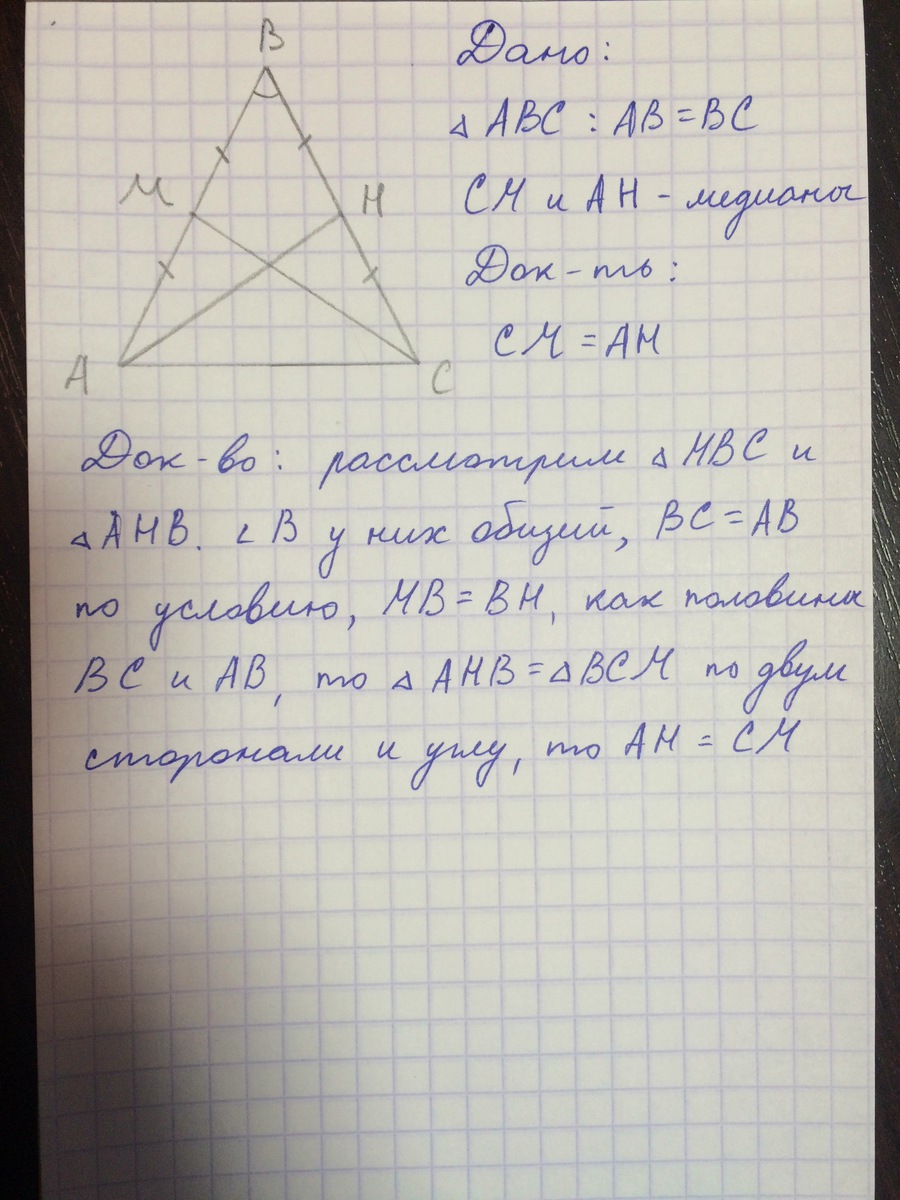 B
M
H
A
C
Дано:
△ ABC : AB = BC
CM и AH - медианы
Док-ть:
CM = AH
Док-во: рассмотрим △ MBC и
△ AHB. ∠ B у них общий, BC = AB
по условию, MB = BH, как половины
BC и AB, то △ AHB = △ BCM по двум
сторонам и углу, то AH = CM